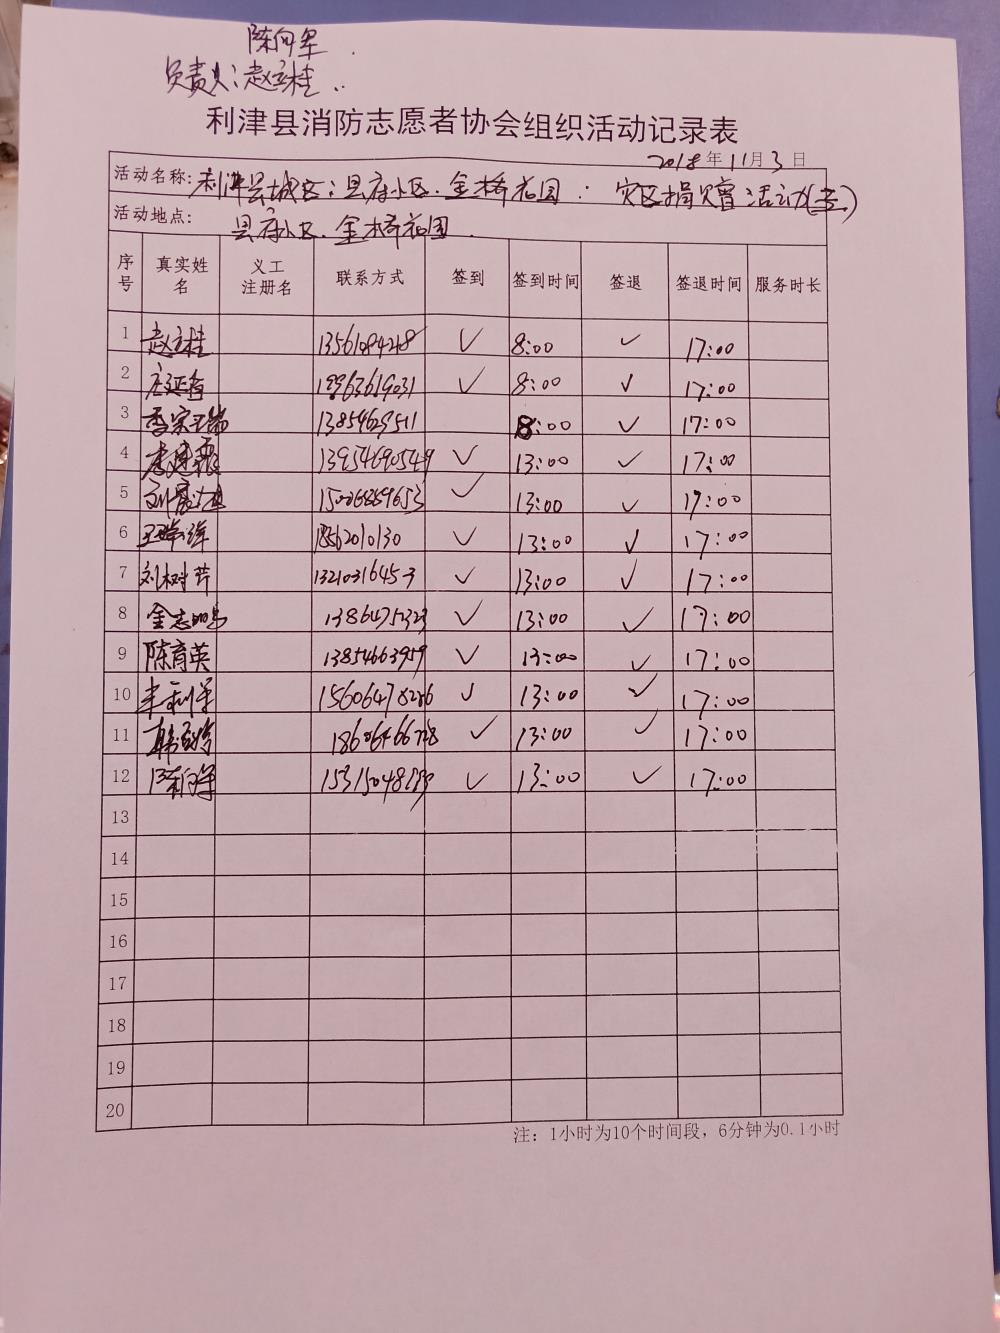 陈向军
负责人：赵立桂
利津县消防志愿者协会组织活动记录表
2018年11月3日
活动名称：利津县城区：县府小区.金桥花园：灾区捐赠活动
活动地点：县府小区.金桥花园
序号 真实姓名 义工注册名 联系方式 签到 签到时间 签退 签退时间 服务时长
1 赵立桂 ✓ 8:00 ✓ 17:00
2 ✓ 8:00 ✓ 17:00
3 13854629511 8:00 ✓ 17:00
4 13954690549 ✓ 13:00 ✓ 17:00
5 15026869653 ✓ 13:00 ✓ 17:00
6 18562010130 ✓ 13:00 ✓ 17:00
7 刘树芹 13210316453 ✓ 13:00 ✓ 17:00
8 金志明 13864752323 ✓ 13:00 ✓ 17:00
9 陈育英 13854663959 ✓ 13:00 ✓ 17:00
10 15606478286 ✓ 13:00 ✓ 17:00
11 ✓ 13:00 ✓ 17:00
12 陈向军 ✓ 13:00 ✓ 17:00
13
14
15
16
17
18
19
20
注：1小时为10个时间段，6分钟为0.1小时